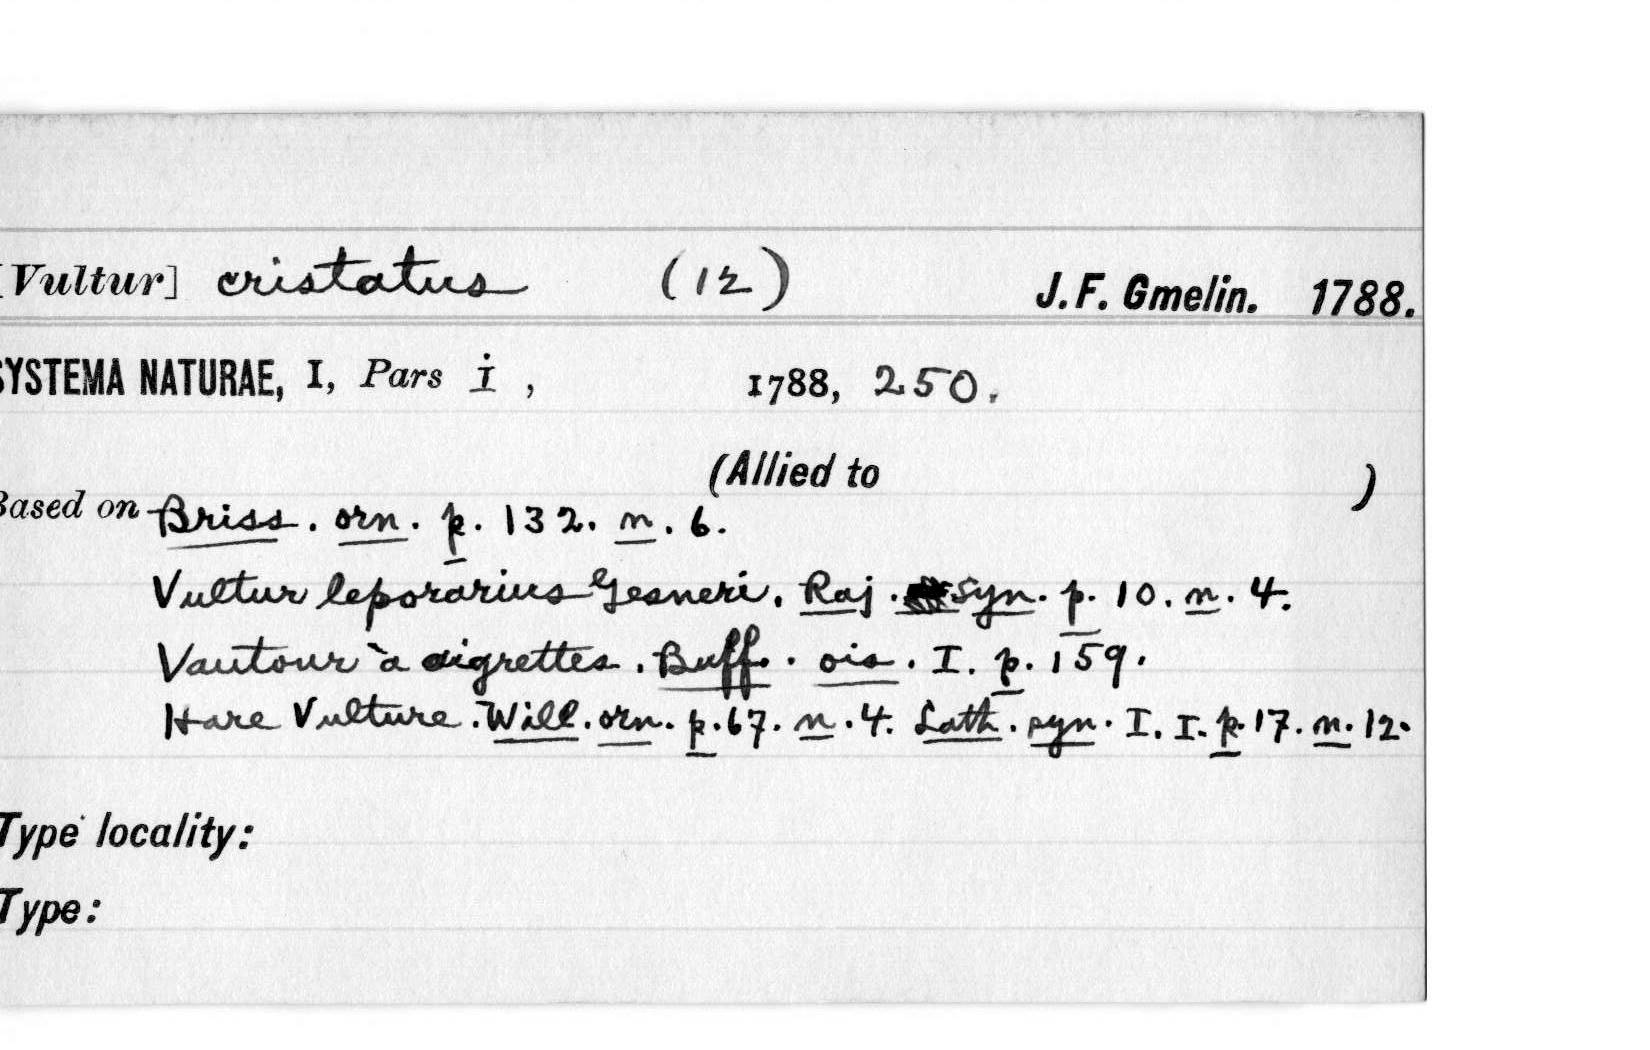 [Vultur] cristatus (12) J. F. Gmelin. 1788.
SYSTEMA NATURAE, I, Pars i, 1788, 250.
(Allied to )
Based on Briss. orn. p. 132. n. 6.
Vultur leporarius Gesneri. Raj. syn. p. 10. n. 4.
Vautour à aigrettes. Buff. ois. I. p. 159.
Hare Vulture. Will. orn. p. 67. n. 4. Lath. syn. I. I. p. 17. n. 12.
Type locality:
Type: